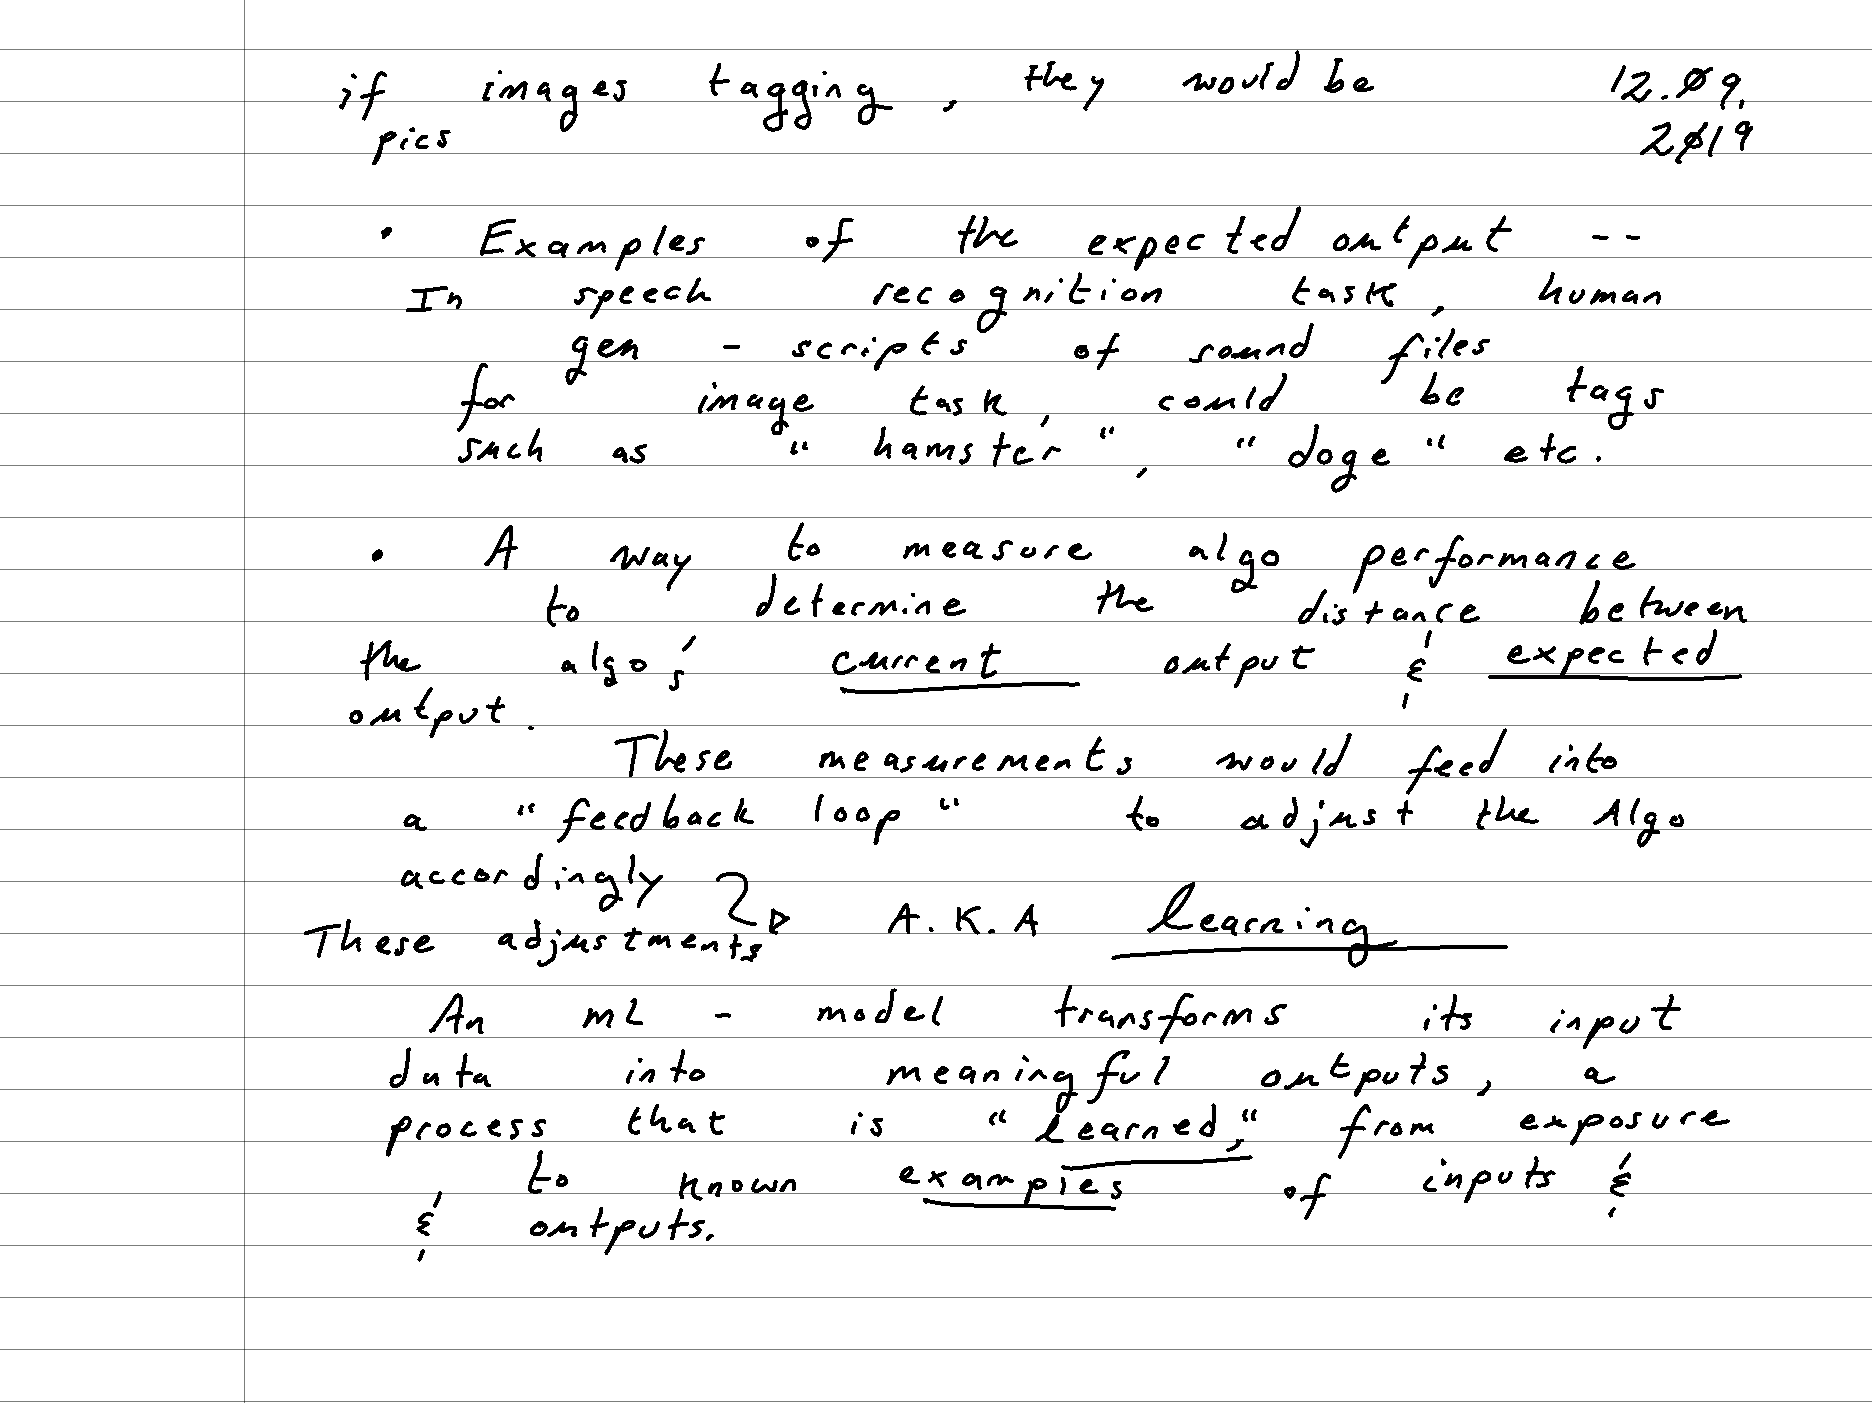 if images tagging, they would be 12.09.
pics 2019
• Examples of the expected output --
In speech recognition task, human
gen - scripts of sound files
for image task, could be tags
such as "hamster", "doge" etc.
• A way to measure algo performance
to determine the distance between
the algo's current output & expected
output.
These measurements would feed into
a "feedback loop" to adjust the Algo
accordingly
These adjustments A.K.A learning
An ML - model transforms its input
data into meaningful outputs, a
process that is "learned," from exposure
to known examples of inputs &
& outputs.